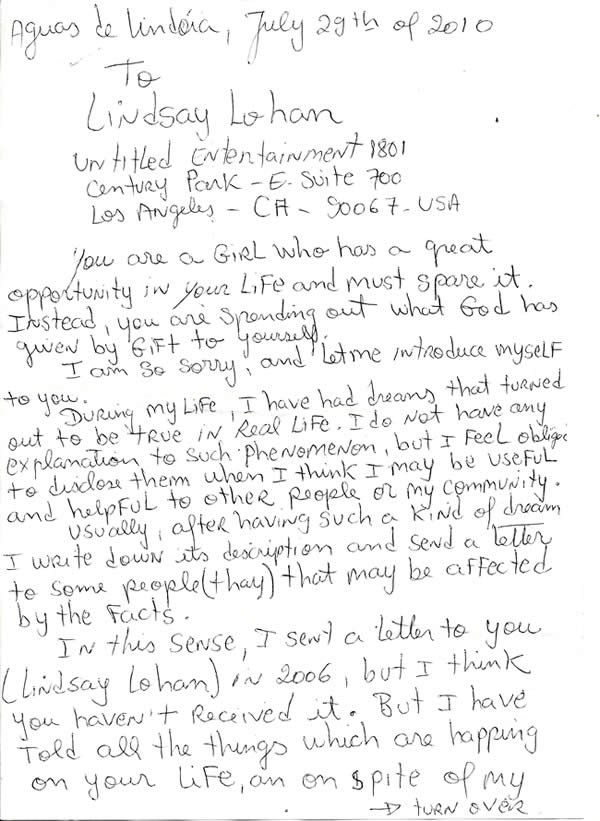 Aguas de Lindóia, July 29th of 2010
To
Lindsay Lohan
Untitled Entertainment 1801
Century Park - E. Suite 700
Los Angeles - CA - 90067 - USA
You are a GIRL who has a great
opportunity in your life and must spare it.
Instead, you are spending out what God has
given by Gift to yourself.
I am so sorry, and let me introduce myself
to you.
During my life, I have had dreams that turned
out to be true in real life. I do not have any
explanation to such phenomenon, but I feel oblige
to disclose them when I think I may be useful
and helpful to other people or my community.
Usually, after having such a kind of dream
I write down its description and send a letter
to some people (thay) that may be affected
by the facts.
In this sense, I sent a letter to you
(Lindsay Lohan) in 2006, but I think
you haven't received it. But I have
Told all the things which are happing
on your life, an on spite of my
→ turn over